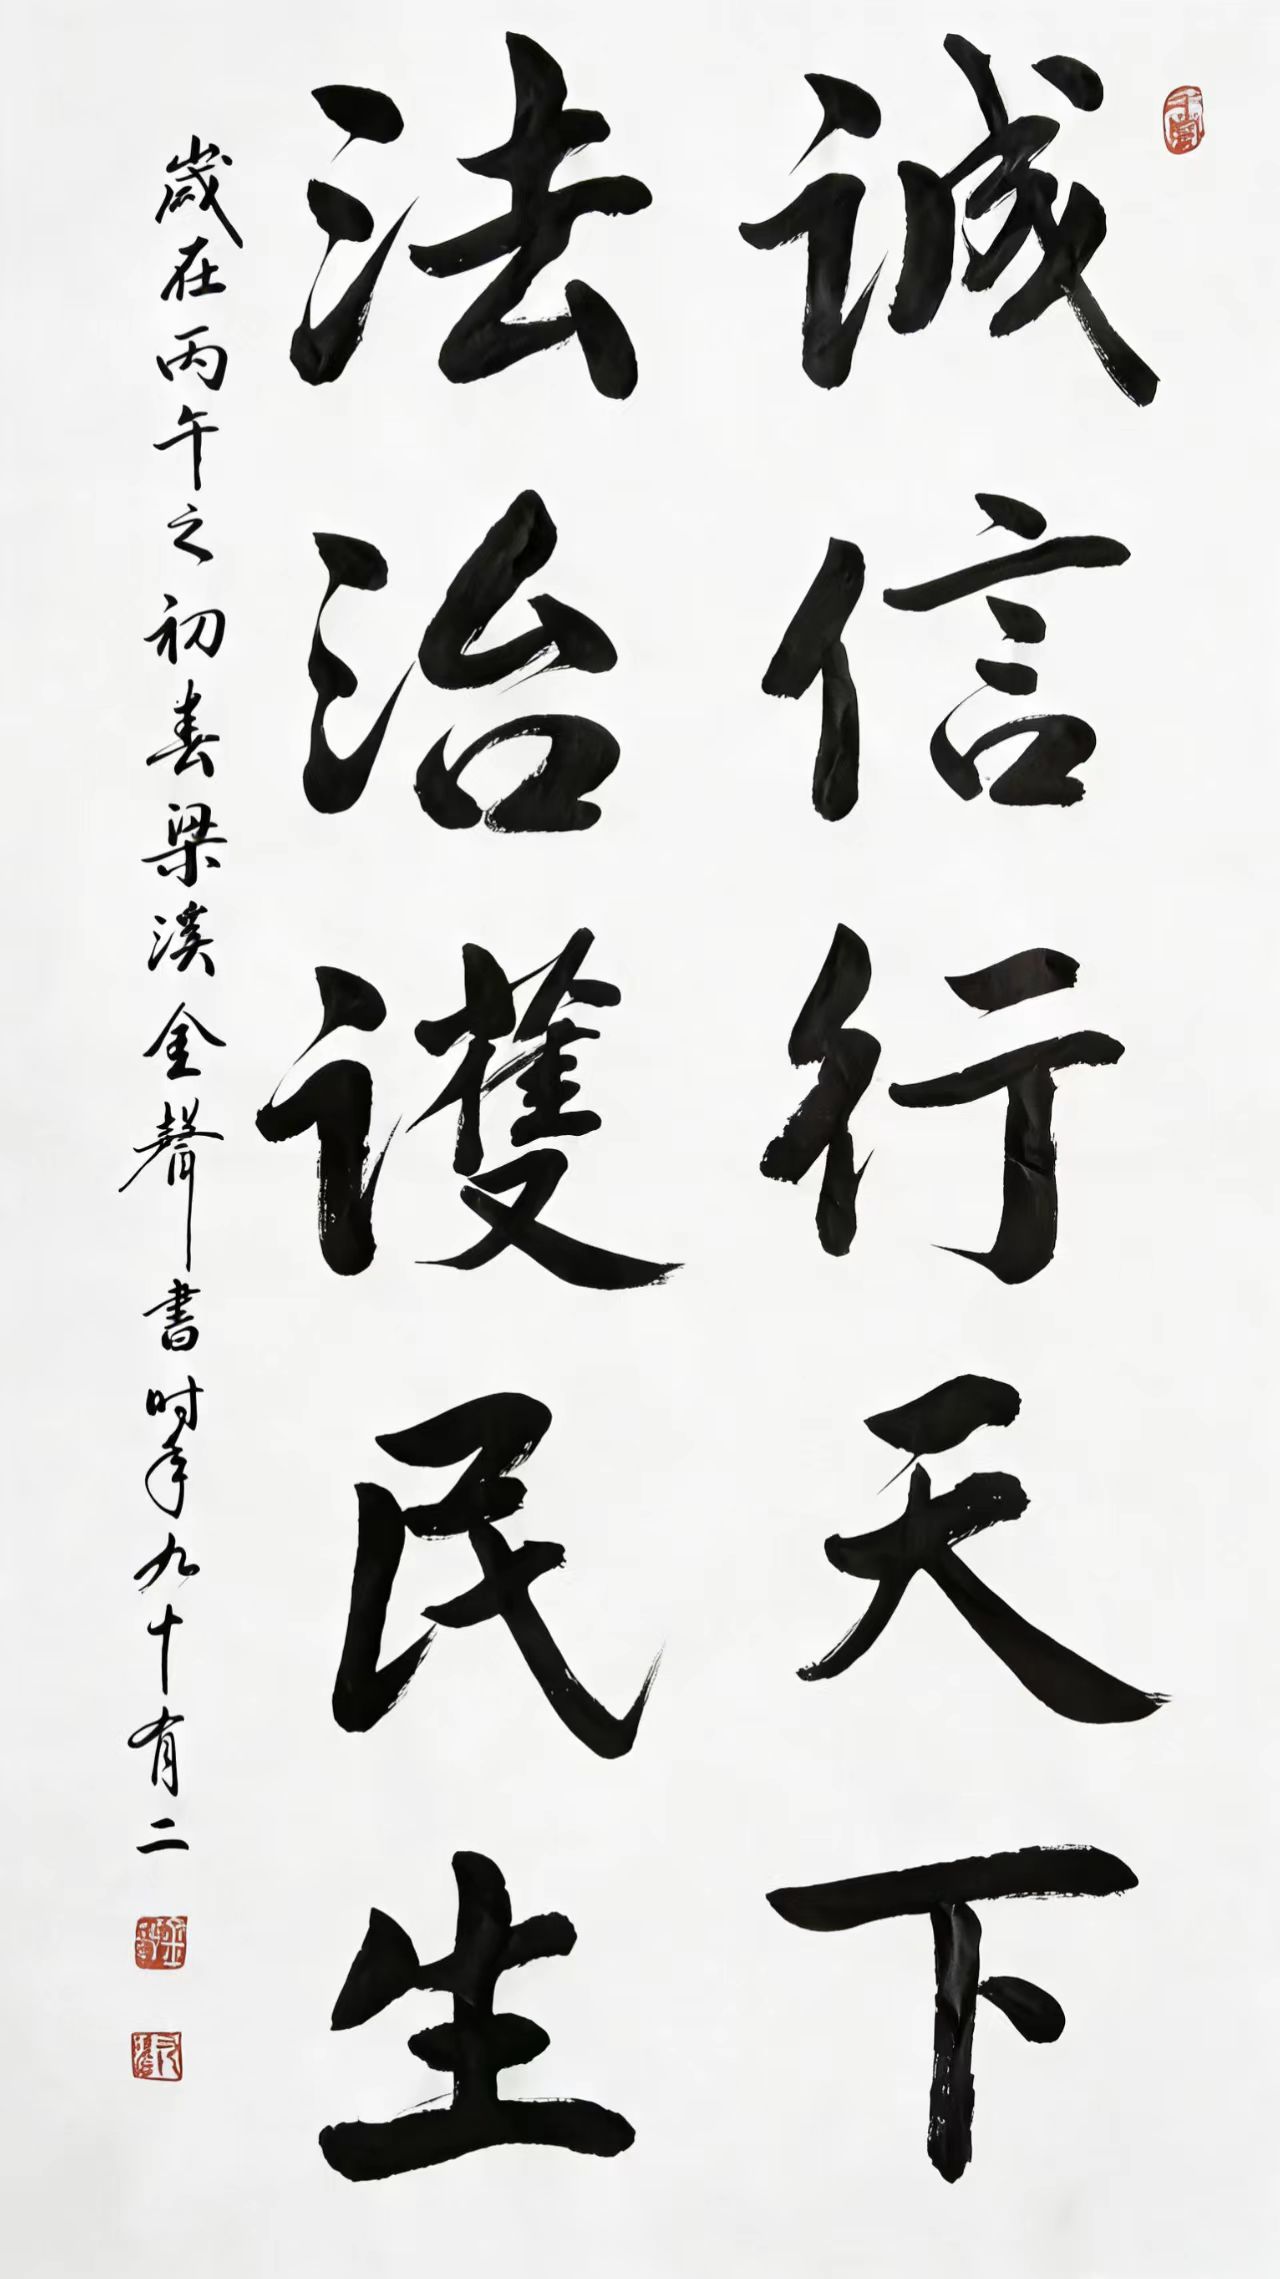 誠信行天下
法治護民生
歲在丙午之初春梁溪金聲書时年九十有二